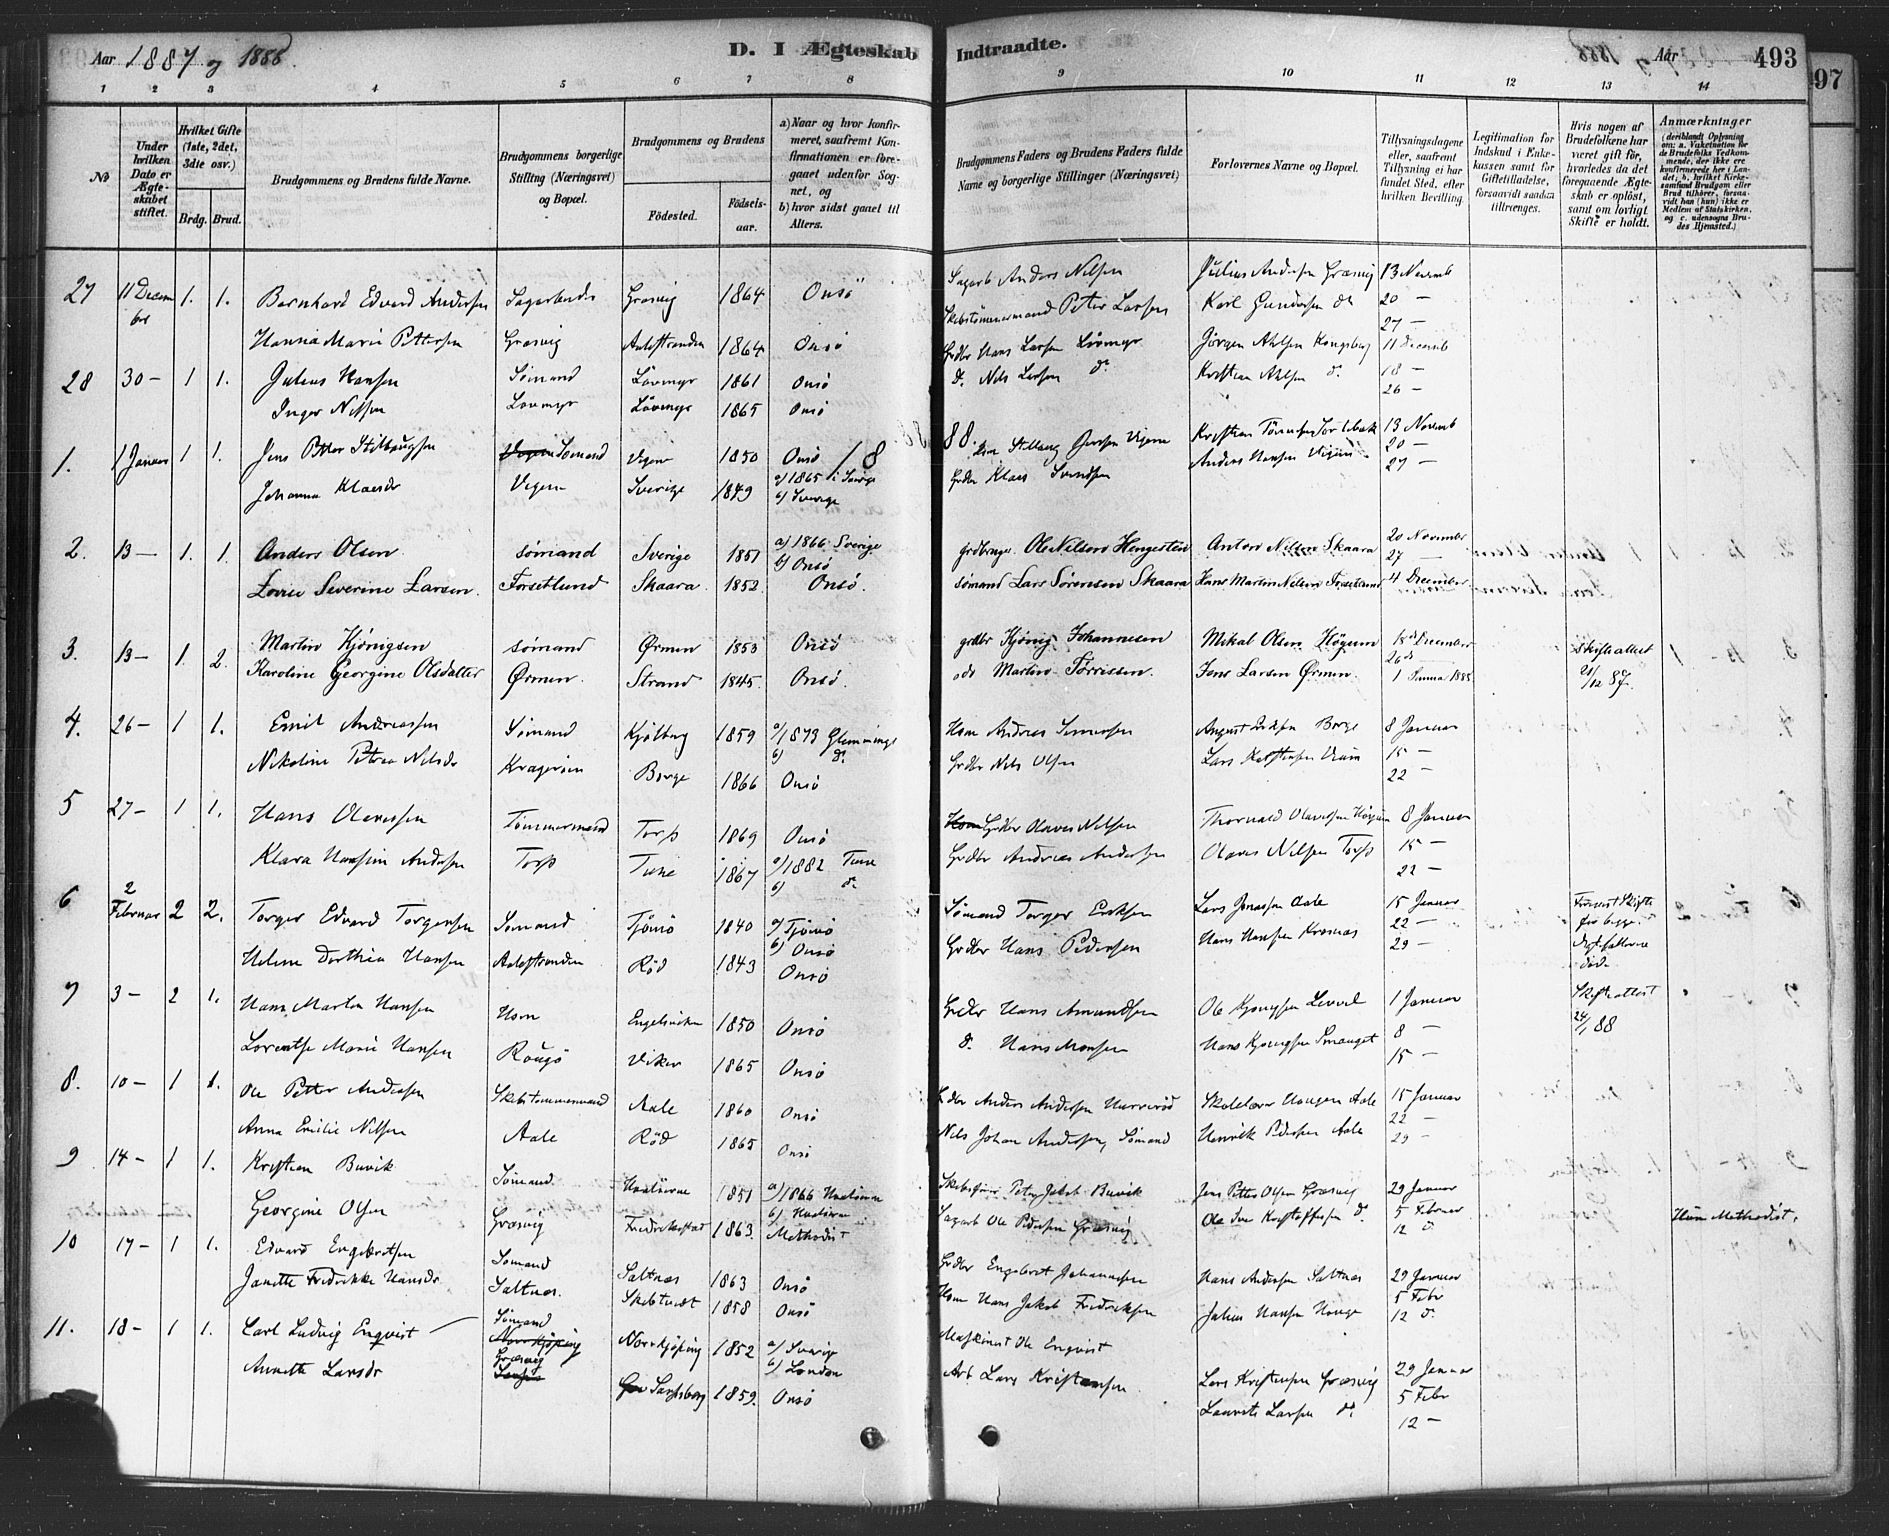 Aar 1887 og 1888.
D. I Ægteskab Indtraadte.
Aar 493
97
1 2 3 4 5 6 7 8 9 10 11 12 13 14
No
Under hvilken Dato er Ægteskabet stiftet.
Hvilket Gifte (1ste, 2det, 3die osv.)
Brdg. Brud.
Brudgommens og Brudens fulde Navne.
Brudgommens borgerlige Stilling (Næringsvei) og Bopæl.
Brudgommens og Brudens
Fødested. Fødselsaar.
a) Naar og hvor konfirmeret, saafremt Konfirmationen er foregaaet udenfor Sognet, og
b) hvor sidst gaaet til Alters.
Brudgommens Faders og Brudens Faders fulde Navne og borgerlige Stillinger (Næringsvei)
Forlovernes Navne og Bopæl.
Tillysningsdagene eller, saafremt Tillysning ei har fundet Sted, efter hvilken Bevilling.
Legitimation for Indskud i Enkekassen samt for Giftetilladelse, forsaavidt saadan tiltrænges.
Hvis nogen af Brudefolkene har været gift før, hvorledes da det foregaaende Ægteskab er opløst, samt om lovligt Skifte er holdt.
Anmærkninger
27 11 Decem ber 1. 1. Bernhard Edvard Andersen Sagarbeider Græsvig 1864 Onsö Sagarb Anders Nilsen Julius Andersen Græsvig 13 Novemb
Skibstömmermand Petter Larsen Karl Gundersen do 20 —
Hanna Marie Pettersen Græsvig Aalestranden 1864 Onsö 27 —
28 30 — 1 1. Julius Hansen Sömand Lövmyr 1861 Onsö Grdbr Hans Larsen Lövmyr Jörgen Ahlsen Kongsberg 11 Decemb
Inger Nilsen Lövmyr Lövmyr 1865 Onsö do. Nils Larsen do Kristian Ahlsen do. 18 —
26 —
88.
1. 1 Januar 1 1. Jens Petter Stilbaugsen Sömand Vigene 1850 Onsö 18 Kristian Tönnesen 13 Novemb
Johanna Klaesdr Vigene Sverige 1849 a) 1865 i Sverige b) Sverige Grdbr Klaes Svendsen Anders Hansen Vigene 20 —
27 —
2. 13 — 1. 1. Anders Olsen sömand Sverige 1851 a) 1866 Sverige b) Onsö grdbruger Ole Nilsen Hengesten Anton Nilsen Skaara 20 November
27 —
Lovise Severine Larsen. Forsetlund Skaara. 1852. Onsö. sömand Lars Sörensen Skaara Hans Martin Nilsen Forsetlund 4 December
3. 13 — 1. 2. Martin Kjönigsen sömand Ørmen 1853 Onsö grdbr Kjönig Johannesen Mikal Olsen Högum 18de December Skifteattest
Karoline Georgine Olsdatter Ørmen. Strand 1845. Onsö. do Martin Törrissen. Jens Larsen Ørmen. 26de 21/12 87.
1 Januar 1888
4. 26 — 1 1. Emil Andreassen Sömand Kjölberg 1859 a) 1873 Glemminge b) do. Hsm Andreas Simensen August Eriksen Borge 8 Januar
Nikoline Petrea Nilsdr Kragerøen Borge 1866 Onsö Grdbr Nils Olsen Lars Kristensen 15 —
22 —
5 27 — 1 1. Hans Olavessen Tömmermand Torp 1869 Onsö Grdbr Olaves Nilsen Thorvald Olavesen Högum 8 Januar
Klara Hansine Andersen Torp Tune 1867 a) 1882 Tune b) do Grdbr Andreas Andersen Olaves Nilsen Torp 15 —
22 —
6 2 Februar 2 2. Torger Edvard Torgersen Sömand Tjömö 1840 a) Tjömö b) Onsö Sömand Torger Eriksen Lars Jonassen Aale 15 Januar
Helene Dorthea Hansen Aalestranden Röd 1843 Onsö Grdbr Hans Pedersen Hans Hansen Kraakas 22 —
29 —
7 3 — 2 1. Hans Martin Hansen Hsm Engelsviken 1850 Onsö Grdbr Hans Amundsen Ole Kjönigsen Lervik 1 Januar Skifteattest
Lorentse Marie Hansen Rougö Viker 1865 Onsö do. Hans Monsen Hans Kjönigsen Smauget 8 — 24/1 88
15 —
8. 10 — 1 1. Ole Petter Andersen Skibstömmermand Aale 1860 Onsö Grdbr Anders Andersen Huseröd Skolelærer Haugen Aale 15 Januar
Anna Emilie Nilsen Aale Röd 1865 Onsö Nils Johan Andersen, Sömand Henrik Pedersen Aale 22 —
29 —
9 14 — 1 1. Kristian Buvik Sömand Hvalöerne 1851 a) 1866 Hvalöerne b) Hvalöerne Peter Jakob Buvik Jens Petter Olsen Græsvig 29 Januar
Georgine Olsen Græsvig Fredrikstad 1863. Methodist Sagarb Ole Pedersen Græsvig Ole Iver Kristoffersen do. 5 Februar Hun Methodist.
12 do
10 17 — 1 1. Edvard Engebretsen Sömand Saltnæs 1863 Onsö Grdbr Engebret Johannesen Hans Andersen Saltnæs 29 Januar
Janette Fredrikke Hansdr Saltnæs. Skibstvedt 1858 Onsö Hsm Hans Jakob Fredriksen Julius Hansen Hauge 5 Febr
12 do.
11. 18 — 1 1. Carl Ludvig Enqvist Sömand Norrkjöping Norrkjöping 1852 a) Sverige b) London Maskinist Ole Enqvist
Annette Larsdr Græsvig Sarpsborg 1859. Onsö Arb Lars Kristensen Lars Kristensen Græsvig 29 Januar
Laurits Larsen do. 5 Febr
12 —